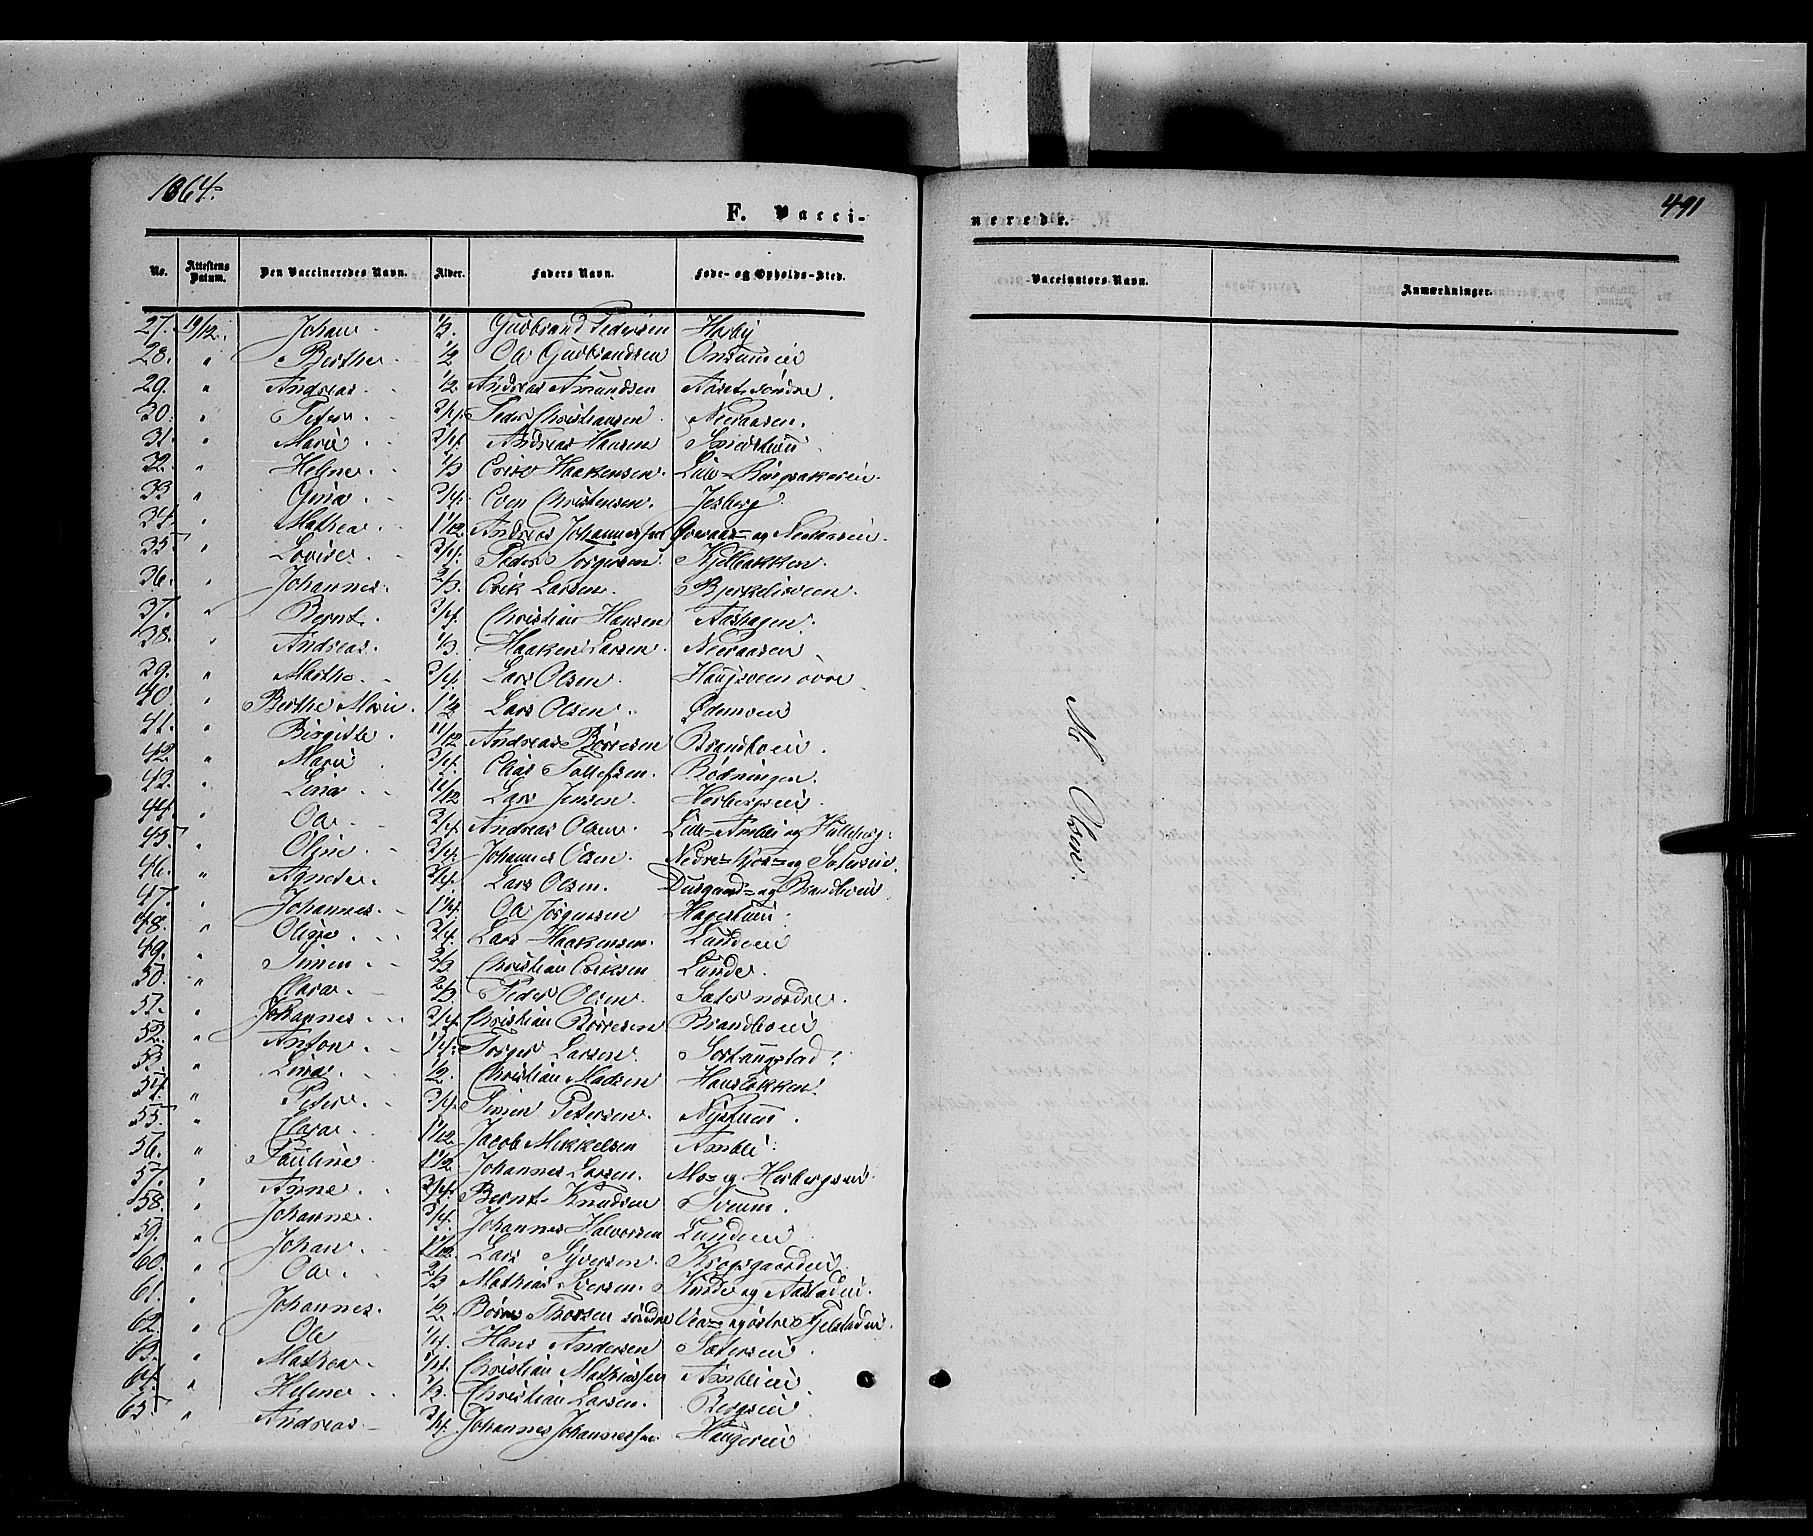 1864.
491
F. Vacci-
nerede.
No. Attestens Datum. Den Vaccineredes Navn. Alder. Faders Navn. Føde- og Opholds-Sted. Vaccinators Navn. Anmærkninger.
27. 19/12. Johan 1/3 Gudbrand Pedersen Horby
28. " Berthe 1/2 Ole Gudbrandsen
29. " Andreas 1/2 Andreas Amundsen Aaset søndre
30. " Peter 3/4 Peder Christiansen Nederaasen.
31. " Marie 3/4 Andreas Hansen Smedstuen
32. " Helene 1/3 Erik Haakensen. Lille-Ringsakereie.
33 " Gina 3/4 Even Christensen. Jesberg
34. " Mathea 11/12 Andreas Johannessen Overaas- og Nederaaseie.
35. " Lovise 3/4 Peder Torgersen. Kjelbakken.
36. " Johannes. 2/3 Erik Larsen. Bjerkelieieen.
37. " Bernt 3/4 Christian Hansen Aashagen.
38. " Andreas. 1/3 Haaken Larsen Nederaasen
39. " Marthe 3/4 Lars Olsen. Haugsveen øvre
40. " Berthe Marie. 1 1/2 Lars Olsen Ødemoen
41. " Birgitte. 11/12 Andreas Børresen Brandboeie.
42. " Marie 3/4 Elias Tollefsen. Rødningen.
43. " Lina 11/12 Lars Jensen. Herbergseie.
44. " Ole 3/4 Andreas Olsen. Lille-Amlie og Hulberg.
45. " Oline 3/4 Johannes Olsen. Nedre-Kjos- og Sætereie.
46. " Agnethe. 3/4 Lars Olsen. Dusgaard- og Brandboeie.
47. " Johannes. 1/4 Ole Jørgensen Hagestuen
48. " Oline 3/4 Lars Haakensen. Lundeeie
49. " Simen 2/3 Christian Eriksen Lunde.
50. " Clara. 2/3 Peder Olsen. Sæter nordre.
51. " Johannes. 3/4 Christian Børresen Brandboeie
52. " Anton. 1/4 Torger Larsen. Sørlaugstad.
53. " Lina 1/2 Christian Madsen Hansløkken.
54. " Peter. 3/4 Simen Petersen. Nystuen.
55. " Clara. 11/12 Jacob Mikkelsen Amlie
56. " Pauline 1 1/2 Johannes Larsen. Mo- og Herbergseie
57. " Anne. 3/4 Bernt Knudsen Sveum.
58. " Johanne. 3/4 Johannes Halvorsen Lundeeie
59. " Johan. 11/12 Lars Syversen Krogsgaardeie.
60. " Ole. 2/3 Mathias Iversen. Kinde og Aastadeie.
61. " Johannes. 1/2 Børre Thorsen søndre Lea- og østre Gjelstadeie.
62. " Ole 1/4 Hans Andersen Sætereie.
63. " Mathea 1/4 Christian Mathiassen Amlieeie
64. " Helene 1/3 Christian Larsen. Bergseie
65. " Andreas 3/4 Johannes Johannessen Haugereie
M. Olsen.